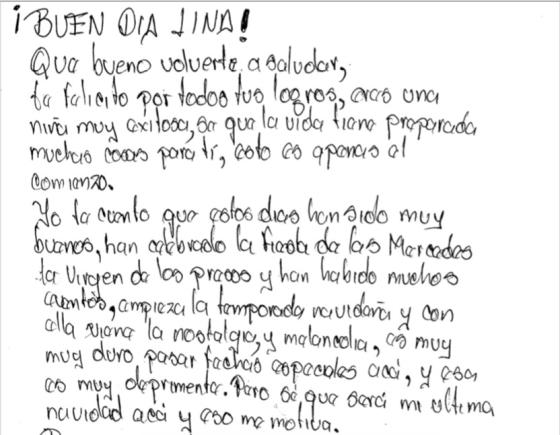 ¡BUEN DIA LINA!
Que bueno volverte a saludar,
te felicito por todos tus logros, eres una
niña muy exitosa, se que la vida tiene preparada
muchas cosas para tí, esto es apenas el
comienzo.
Yo te cuento que estos dias han sido muy
buenos, han celebrado la fiesta de las Mercedes
la Virgen de los presos y han habido muchos
eventos, empieza la temporada navideña y con
ella viene la nostalgia, y melancolia, es muy
muy duro pasar fechas especiales acá, y esa
es muy deprimente. Pero sé que será mi ultima
navidad acá y eso me motiva.